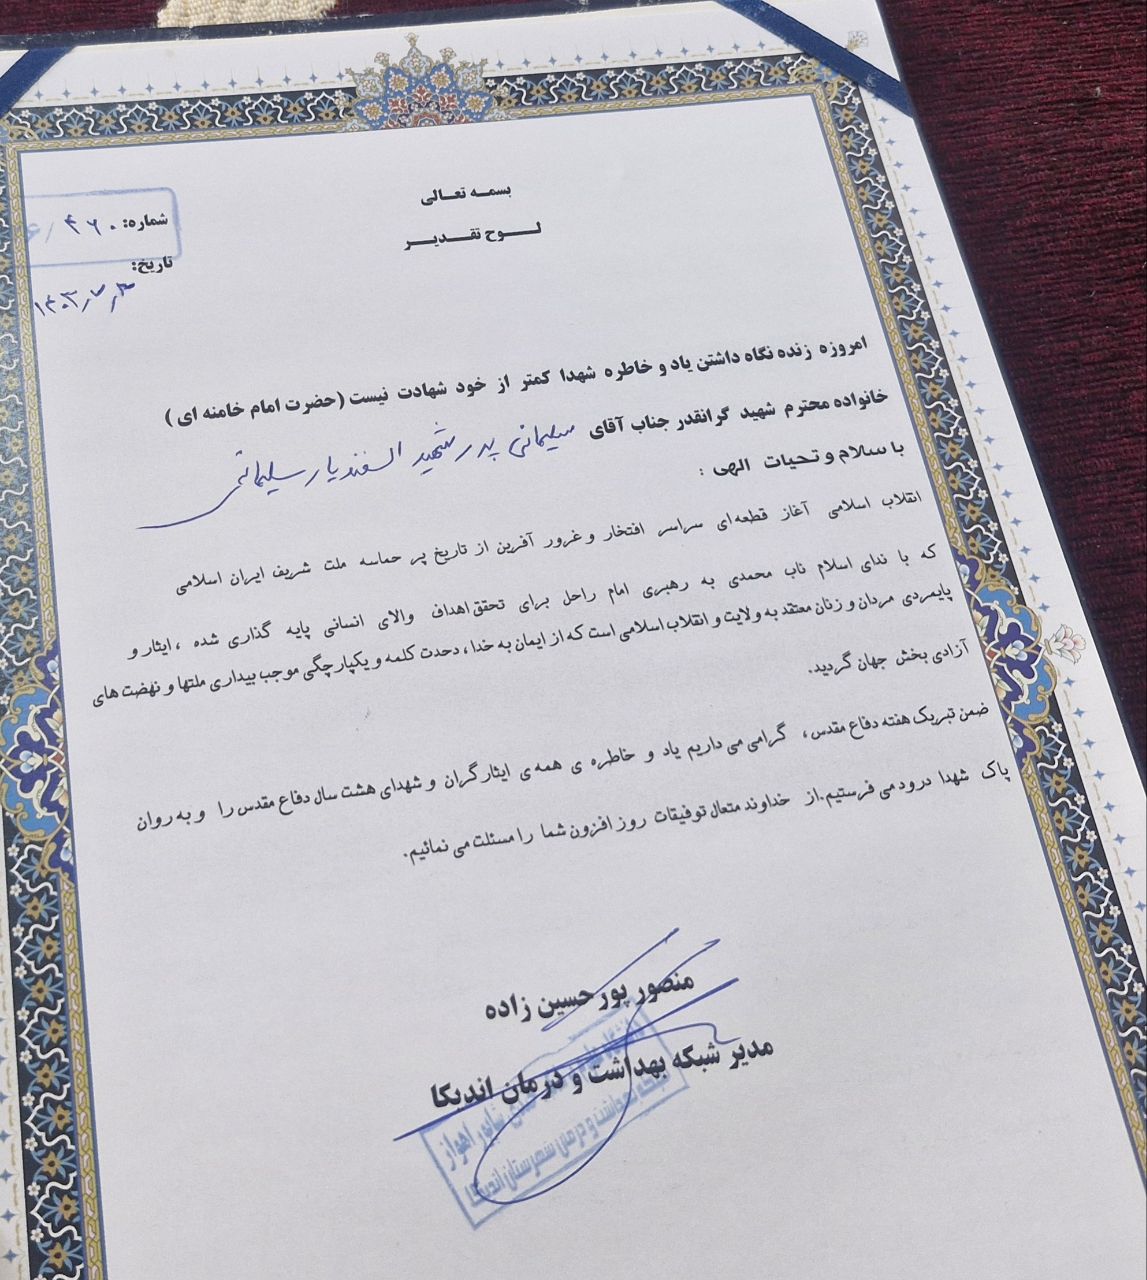 بسمه تعالی
لوح تقدیر
شماره: ۴۶۰/
تاریخ:
۱۴۰۳٫۷٫
امروزه زنده نگاه داشتن یاد و خاطره شهدا کمتر از خود شهادت نیست (حضرت امام خامنه ای )
خانواده محترم شهید گرانقدر جناب آقای سلیمانی پدر شهید اسفندیار سلیمانی
با سلام و تحیات الهی :
انقلاب اسلامی آغاز قطعه ای سراسر افتخار و غرور آفرین از تاریخ پر حماسه ملت شریف ایران اسلامی
که با ندای اسلام ناب محمدی به رهبری امام راحل برای تحقق اهداف والای انسانی پایه گذاری شده ، ایثار و
پایمردی مردان و زنان معتقد به ولایت و انقلاب اسلامی است که از ایمان به خدا ، دحدت کلمه و یکپارچگی موجب بیداری ملتها و نهضت های
آزادی بخش جهان گردید.
ضمن تبریک هفته دفاع مقدس ، گرامی می داریم یاد و خاطره ی همه ی ایثارگران و شهدای هشت سال دفاع مقدس را و به روان
پاک شهدا درود می فرستیم.از خداوند متعال توفیقات روز افزون شما را مسئلت می نمائیم.
منصور پور حسین زاده
مدیر شبکه بهداشت و درمان اندیکا
شبکه بهداشت و درمان شهرستان اندیکا